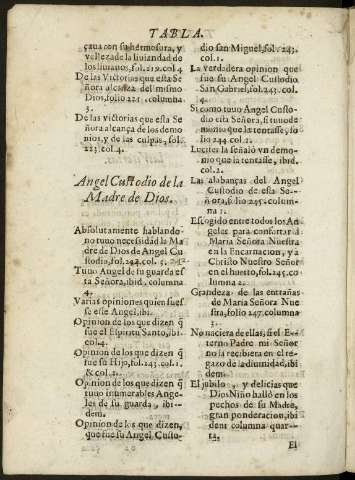 TABLA.
çaua con su hermosura, y
vellezade la liuiandad de
los liuianos, fol.219.col.4
De las Victorias que esta Se
ñora alcanza del mismo
Dios, folio 221. columna
3.
De las victorias que esta Se
ñora alcança de los demo
nios, y de las culpas, fol.
223 col.4.
Angel Custodio de la
Madre de Dios.
Absolutamente hablando
no tuuo necesidad la Ma
dre de Dios de Angel Cu
stodio, fol.242.col.
Tuuo Angel de su guarda es
ta Señora, ibid. columna
4.
Varias opiniones quien fues
se este Angel, ibi.
Opinion de los que dizen q̃
fue el Espiritu Santo, ibi
col.4.
Opinion de los que dizen q̃
fue su Hijo, fol.243.col.1.
& col.2.
Opinion de los que dizen q̃
tuuo inumerables Ange-
les de su guarda, ibi--
dem.
Opinion de los que dizen,
que fue su Angel Custo-
dio san Miguel, fol. 243.
col.1.
La verdadera opinion que
fue su Angel Custodio
San Gabriel, fol.243. col.
4.
Si como tuuo Angel Custo-
dio esta Señora, si tuuo de
monio que la tentasse, fo
lio 244 col 1.
Lucifer la señalò vn demo-
nio que la tentasse, ibid.
col.2.
Las alabanças del Angel
Custodio de esta Se-
ñora, folio 245. colum-
na 1.
Escogido entre todos los An
geles para confortar à
Maria Señora Nuestra
en la Encarnacion, y a
Christo Nuestro Señor
en el huerto, fol.245. co
lumna 2.
Grandeza de las entrañas
de Maria Señora Nue
stra, folio 247. columna
3.
No naciera de ellas, si el E-
terno Padre mi Señor
no la recibiera en el re-
gazo de la diuinidad, ibi
dem.
El jubilo, y delicias que
Dios Niño hallò en los
pechos de su Madre,
gran ponderacion, ibi
dem columna quar-
ta.
El